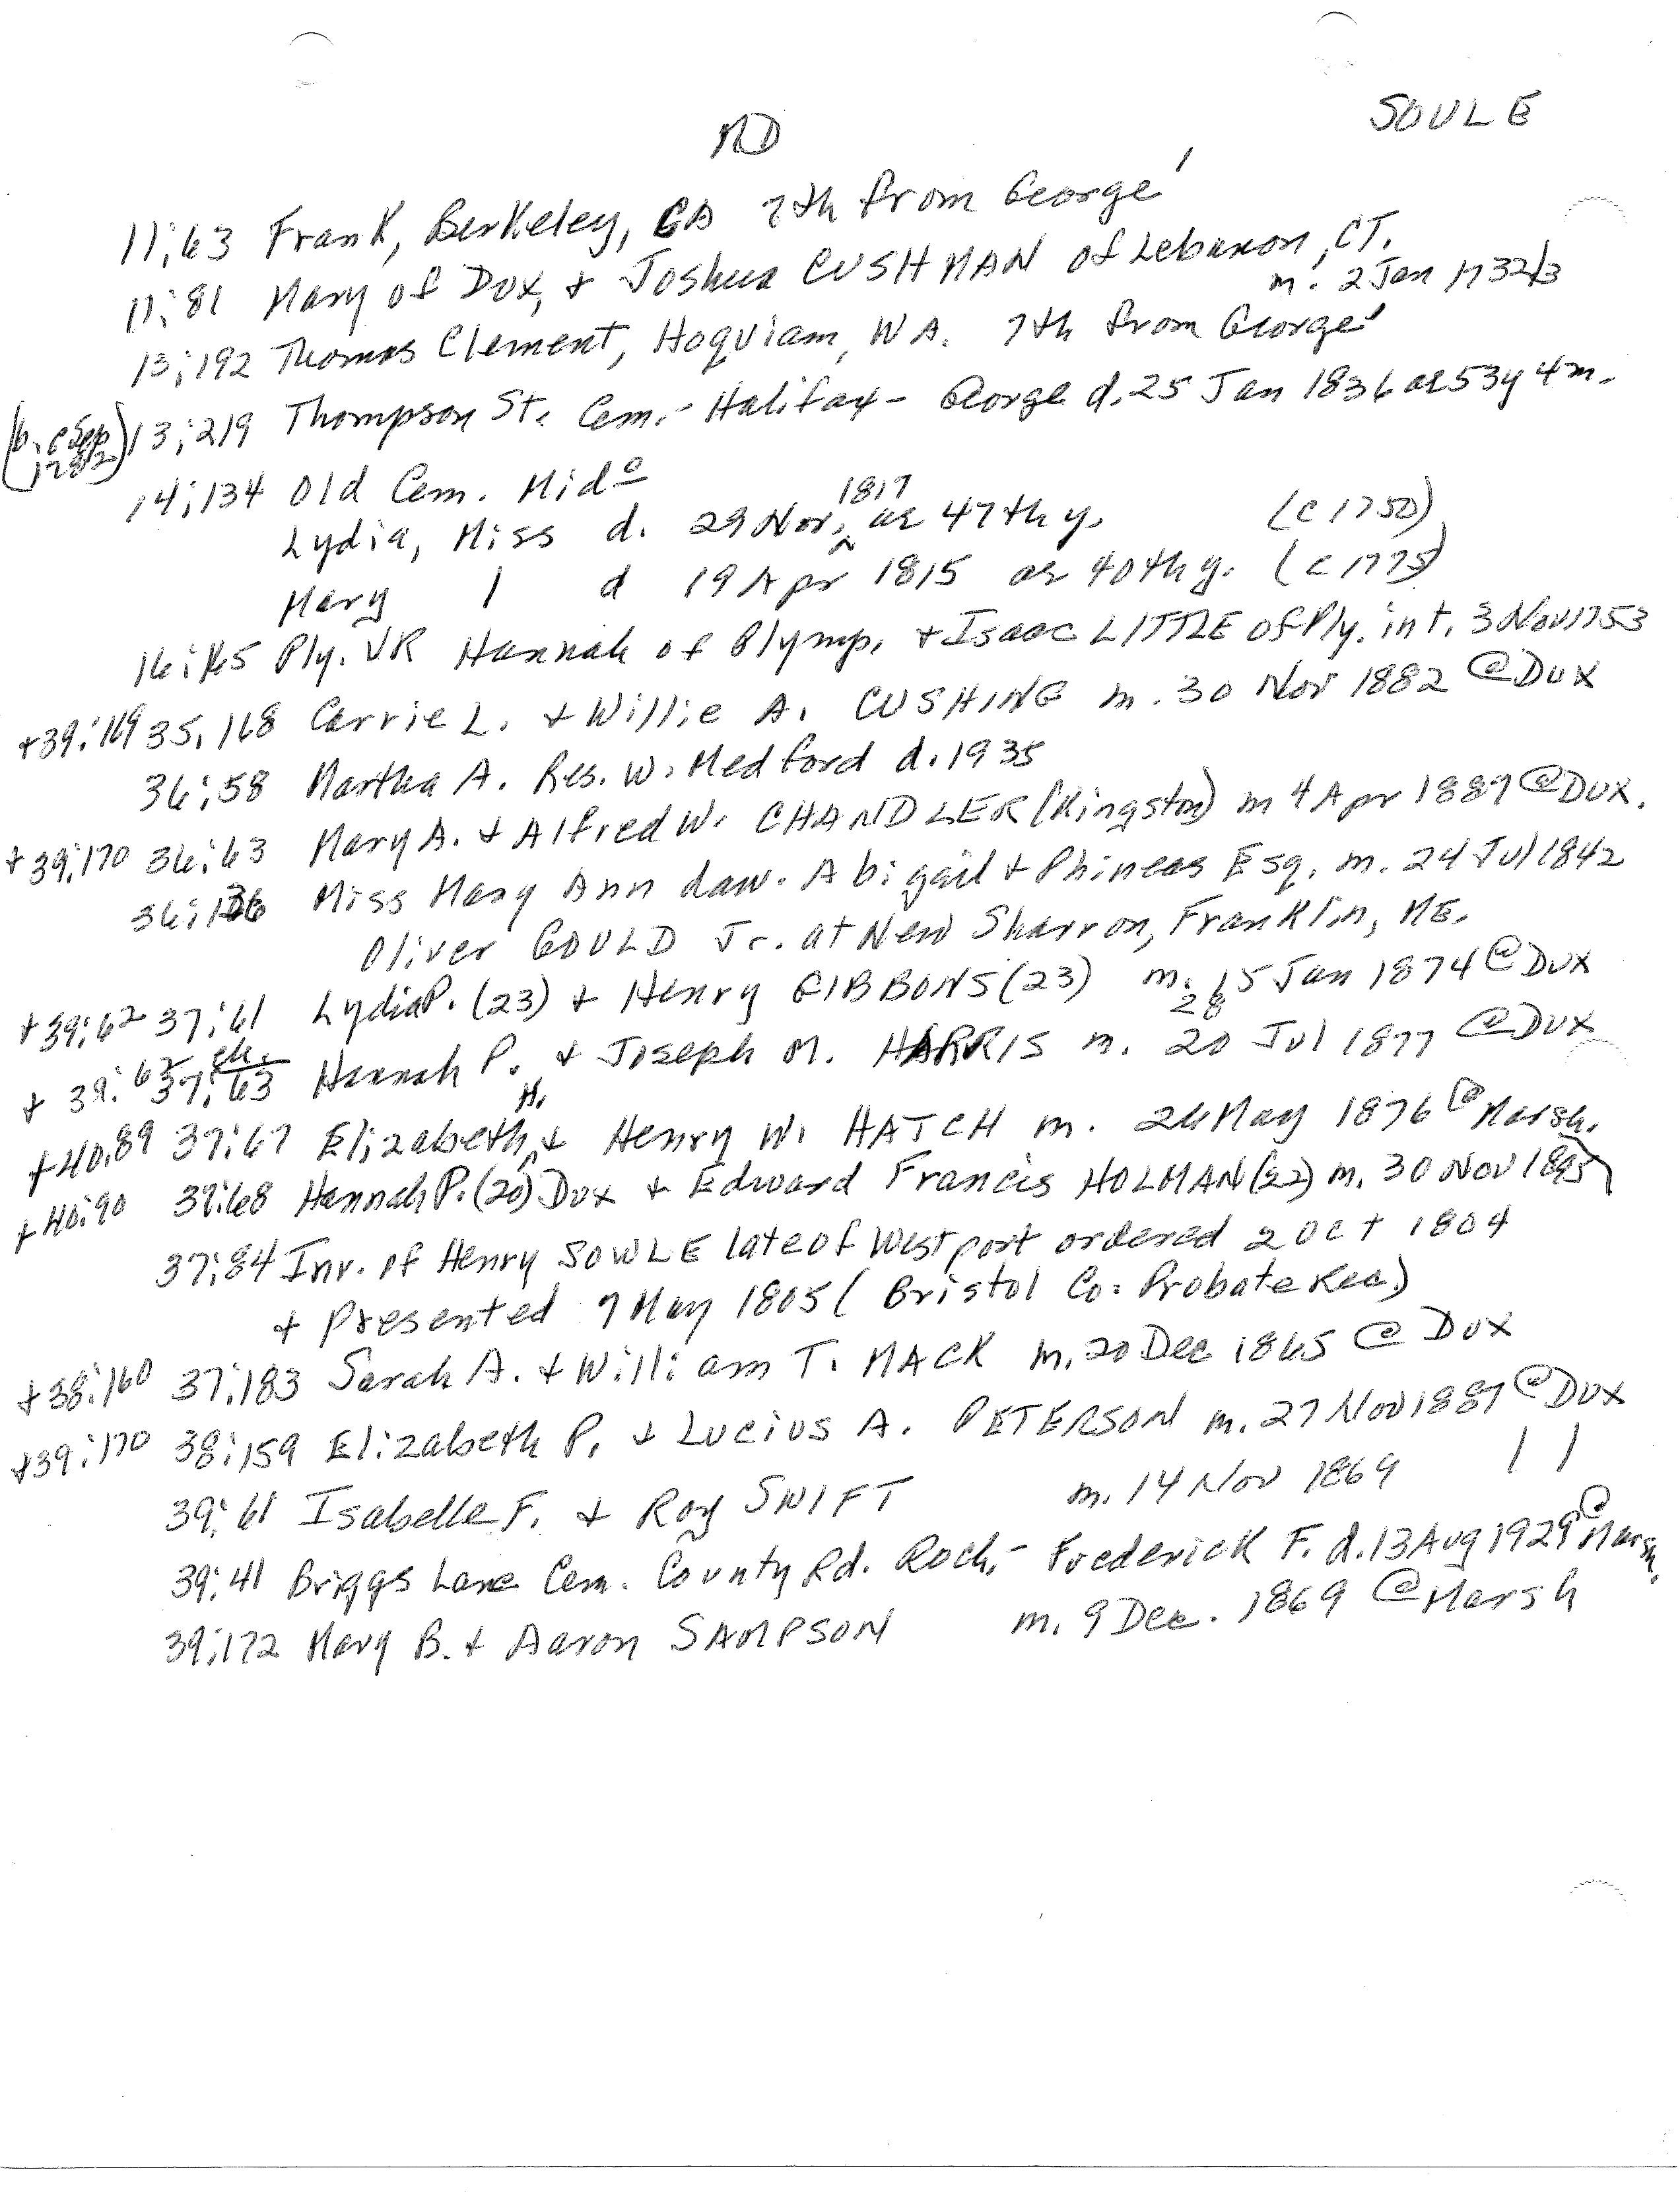 SOULE
MD
11:63 Frank, Berkeley, CA 7th from George'
11:81 Mary of Dux, + Joshua CUSHMAN of Lebanon, CT.
m. 2 Jan 1732/3
13:192 Thomas Clement, Hoquiam, WA. 7th from George'
(b. c Sep 1782) 13:219 Thompson St. Cem. - Halifax - George d. 25 Jan 1836 ae 53y 4m.
14:134 Old Cem. Mido
Lydia, Miss d. 29 Nov, 1817 ae 47th y. (c 1750)
Mary | d 19 Apr 1815 ae 40th y. (c 1775)
Ply. VR Hannah of Plymp. + Isaac LITTLE of Ply. int. 3 Nov 1753
+39:169 35:168 Carrie L. + Willie A. CUSHING m. 30 Nov 1882 @ Dux
36:58 Martha A. Res. W. Medford d. 1935
+39:170 36:63 Mary A. + Alfred W. CHANDLER (Kingston) m 4 Apr 1887 @ Dux.
Miss Mary Ann dau. Abigail + Phineas Esq. m. 24 Jul 1842
Oliver GOULD Jr. at New Sharron, Franklin, ME.
+39:62 37:61 Lydia P. (23) + Henry GIBBONS (23) m. 15 Jan 1874 @ Dux
28
+ 39:63 37:63 Hannah P. + Joseph M. HARRIS m. 20 Jul 1877 @ Dux
+40:89 37:67 Elizabeth H. + Henry W. HATCH m. 26 May 1876 @ Marsh.
+40:90 37:68 Hannah P. (20) Dux + Edward Francis HOLMAN (22) m. 30 Nov 1895
37:84 Inv. of Henry SOWLE late of Westport ordered 2 Oct 1804
+ Presented 7 May 1805 (Bristol Co. Probate Rec.)
+38:160 37:183 Sarah A. + William T. MACK m. 20 Dec 1865 @ Dux
+39:170 38:159 Elizabeth P. + Lucius A. PETERSON m. 27 Nov 1887 @ Dux
39:61 Isabelle F. + Roy SWIFT m. 14 Nov 1869 | |
39:41 Briggs Lane Cem. County Rd. Roch. - Frederick F. d. 13 Aug 1929 @ Marsh.
39:172 Mary B. + Aaron SAMPSON m. 9 Dec. 1869 @ Marsh